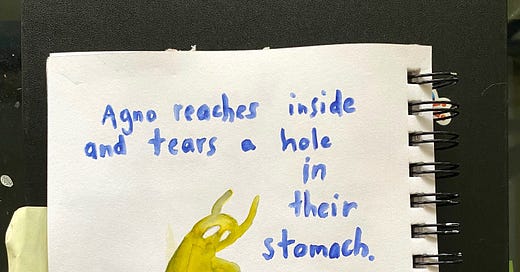 Agno reaches inside
and tears a hole
in
their
stomach.